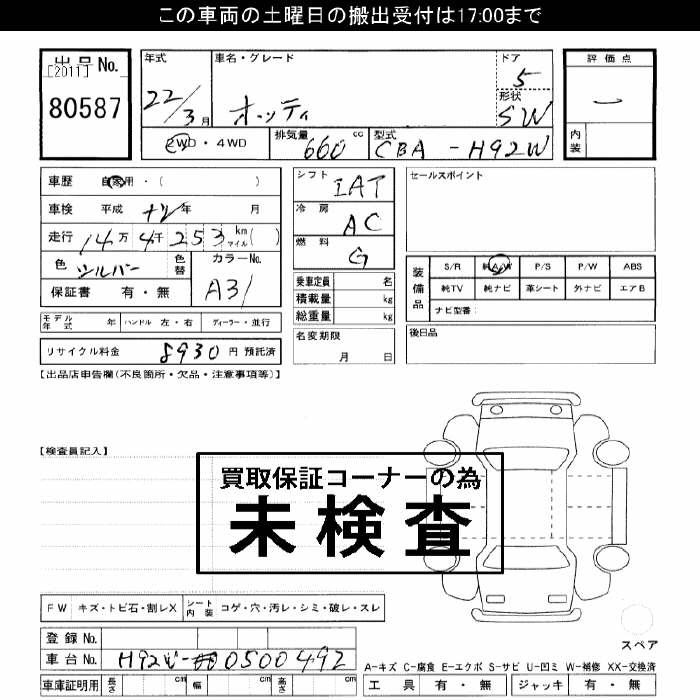 この車両の土曜日の搬出受付は17:00まで
出品 No.
[2011]
80587
年式
22/3月
車名・グレード
オッティ
ドア
5
形状
SW
評価点
ー
内装
2WD・4WD
排気量
660 cc
型式
CBA-H92W
車歴 自家用・( )
車検 平成 年 月
走行 14万 4千 253 km マイル( )
色 シルバー
色替
カラーNo.
A31
保証書 有・無
シフト
IAT
冷房
AC
燃料
G
乗車定員 名
積載量 kg
総重量 kg
名変期限
月 日
セールスポイント
装備品
S/R 純A/W P/S P/W ABS
純TV 純ナビ 革シート 外ナビ エアB
ナビ型番:
後日品
モデル年式 年 ハンドル 左・右 ディーラー・並行
リサイクル料金 8930 円 預託済
【出品店申告欄(不良箇所・欠品・注意事項等)】
【検査員記入】
買取保証コーナーの為
未検査
FW キズ・トビ石・割レX
シート内装 コゲ・穴・汚レ・シミ・破レ・スレ
登録 No.
車台 No. H92W-0500492
車庫証明用 長さ 幅 高さ
スペア
A-キズ C-腐食 E-エクボ S-サビ U-凹ミ W-補修 XX-交換済
工具 有・無 ジャッキ 有・無